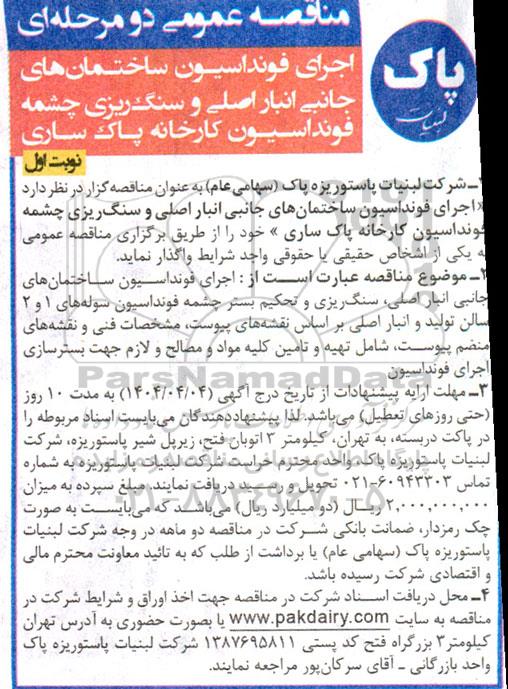 مناقصه عمومی دو مرحله‌ای
پاک
لبنیات
اجرای فونداسیون ساختمان‌های
جانبی انبار اصلی و سنگ‌ریزی چشمه
فونداسیون کارخانه پاک ساری
نوبت اول
۱ـ شرکت لبنیات پاستوریزه پاک (سهامی عام) به عنوان مناقصه‌گزار در نظر دارد
«اجرای فونداسیون ساختمان‌های جانبی انبار اصلی و سنگ‌ریزی چشمه
فونداسیون کارخانه پاک ساری » خود را از طریق برگزاری مناقصه عمومی
به یکی از اشخاص حقیقی یا حقوقی واجد شرایط واگذار نماید.
۲ـ موضوع مناقصه عبارت است از : اجرای فونداسیون ساختمان‌های
جانبی انبار اصلی، سنگ‌ریزی و تحکیم بستر چشمه فونداسیون سوله‌های ۱ و ۲
سالن تولید و انبار اصلی بر اساس نقشه‌های پیوست، مشخصات فنی و نقشه‌های
منضم پیوست، شامل تهیه و تامین کلیه مواد و مصالح و لازم جهت بسترسازی
اجرای فونداسیون
ParsNamadData
۳ـ مهلت ارایه پیشنهادات از تاریخ درج آگهی (۱۴۰۴/۰۴/۰۴) به مدت ۱۰ روز
(حتی روزهای تعطیل) می‌باشد. لذا پیشنهاددهندگان می‌بایست اسناد مربوطه را
در پاکت دربسته، به تهران، کیلومتر ۳ اتوبان فتح، زیرپل شیر پاستوریزه، شرکت
لبنیات پاستوریزه پاک، واحد محترم حراست شرکت لبنیات پاستوریزه به شماره
تماس ۶۰۹۴۳۳۰۳-۰۲۱ تحویل و رسید دریافت نمایند. مبلغ سپرده به میزان
۰۲۱-۸۸۳۴۹۶۷۰-۵
۲,۰۰۰,۰۰۰,۰۰۰ ریال (دو میلیارد ریال) می‌باشد که می‌بایست به صورت
چک رمزدار، ضمانت بانکی شرکت در مناقصه دو ماهه در وجه شرکت لبنیات
پاستوریزه پاک (سهامی عام) یا برداشت از طلب که به تائید معاونت محترم مالی
و اقتصادی شرکت رسیده باشد.
۴ـ محل دریافت اسناد شرکت در مناقصه جهت اخذ اوراق و شرایط شرکت در
مناقصه به سایت www.pakdairy.com یا بصورت حضوری به آدرس تهران
کیلومتر۳ بزرگراه فتح کد پستی ۱۳۸۷۶۹۵۸۱۱ شرکت لبنیات پاستوریزه پاک
واحد بازرگانی ـ آقای سرکان‌پور مراجعه نمایند.